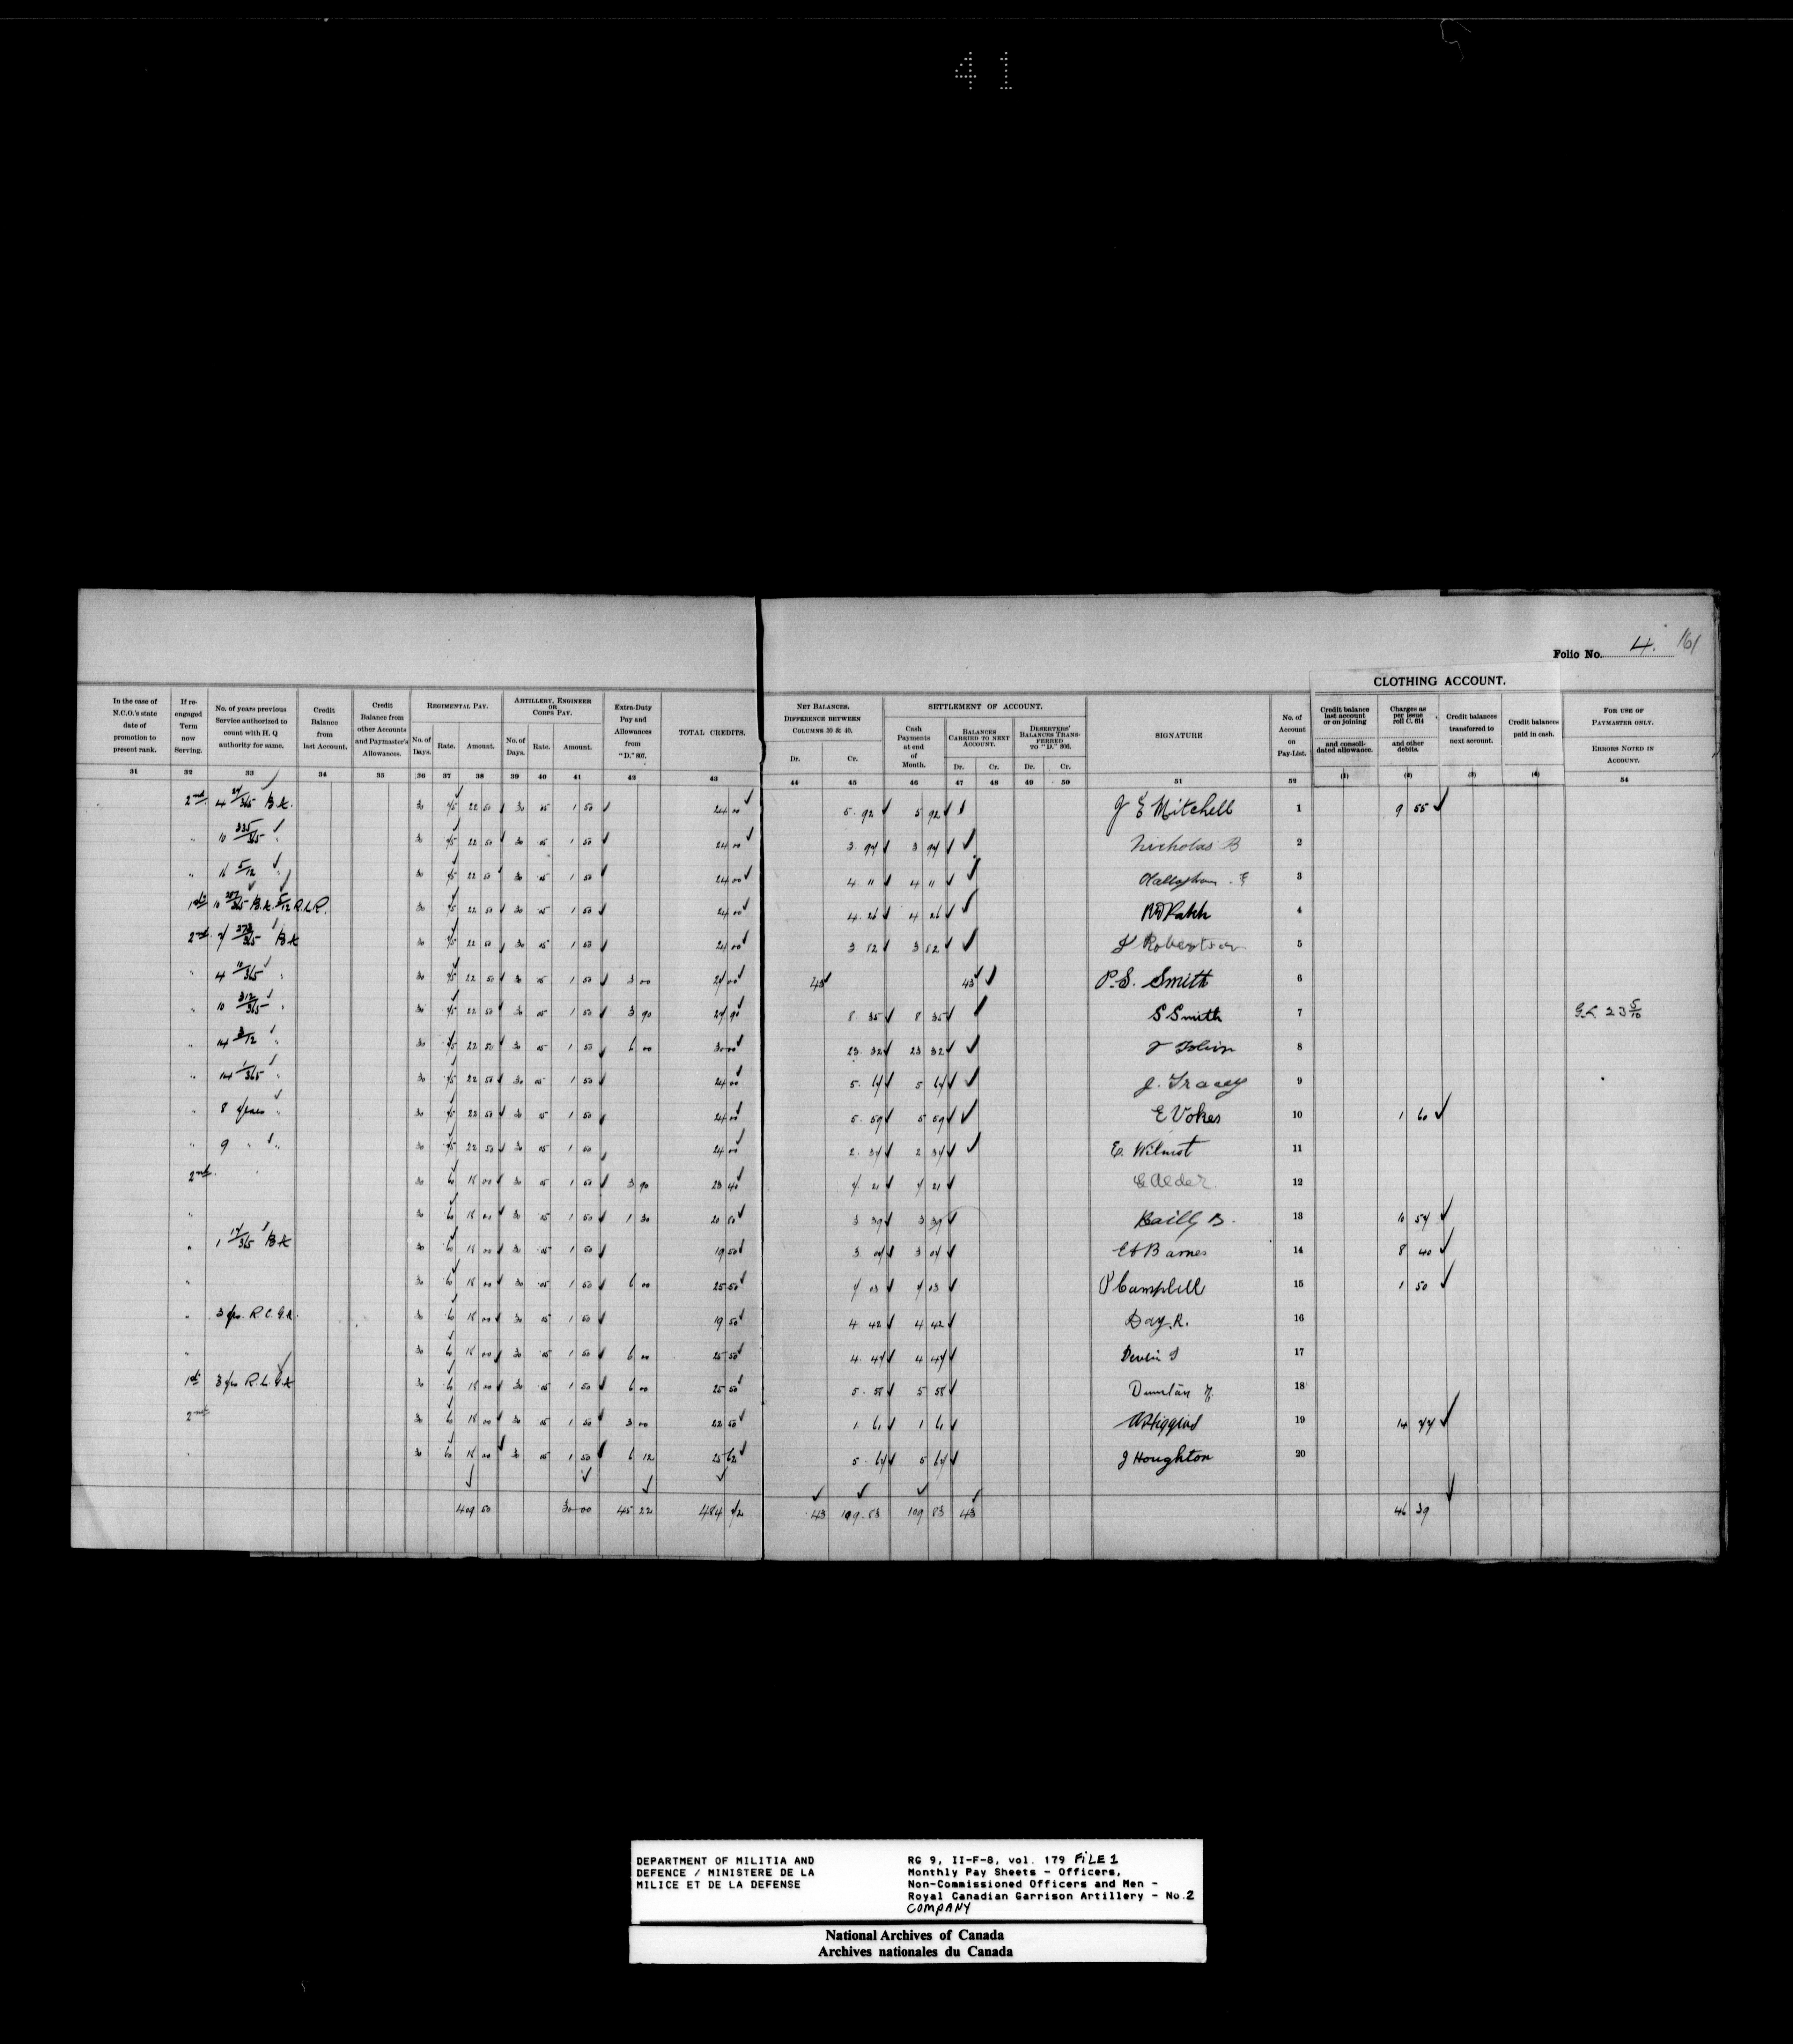 41
Folio No. 4. 161
CLOTHING ACCOUNT.
In the case of N.C.O.'s state date of promotion to present rank.
If re-engaged Term now Serving.
No. of years previous Service authorized to count with H. Q authority for same.
Credit Balance from last Account.
Credit Balance from other Accounts and Paymaster's Allowances.
REGIMENTAL PAY.
No. of Days. Rate. Amount.
ARTILLERY, ENGINEER OR CORPS PAY.
No. of Days. Rate. Amount.
Extra-Duty Pay and Allowances from "D." 807.
TOTAL CREDITS.
NET BALANCES. DIFFERENCE BETWEEN COLUMNS 30 & 40.
Dr. Cr.
SETTLEMENT OF ACCOUNT.
Cash Payments at end of Month.
BALANCES CARRIED TO NEXT ACCOUNT.
Dr. Cr.
DESERTERS' BALANCES TRANSFERRED TO "D." 806.
Dr. Cr.
SIGNATURE
No. of Account on Pay-List.
Credit balance last account or on joining and consolidated allowance.
Charges as per issue roll C. 614 and other debits.
Credit balances transferred to next account.
Credit balances paid in cash.
FOR USE OF PAYMASTER ONLY.
ERRORS NOTED IN ACCOUNT.
31 32 33 34 35 36 37 38 39 40 41 42 43 44 45 46 47 48 49 50 51 52 (1) (2) (3) (4) 54
2nd 4 24/365 30 75 22 50 30 05 1 50 24 00 5.92 5 92 J E Mitchell 1 9 55
" 10 335/365 " 30 75 22 50 30 05 1 50 24 00 3.97 3 97 Nicholas B 2
" 16 5/12 " 30 75 22 50 30 05 1 50 24 00 4.11 4 11 3
1st 10 5/12 R.L.R. 30 75 22 50 30 05 1 50 24 00 4.26 4 26 4
2nd 7 30 75 22 50 30 05 1 50 24 00 3 82 3 82 Robertson 5
" 4 10/365 " 30 75 22 50 30 05 1 50 3 00 27 00 43 43 P.S. Smith 6
" 10 312/365 " 30 75 22 50 30 05 1 50 3 90 27 90 8.35 8 35 S Smith 7
" 14 3/12 " 30 75 22 50 30 05 1 50 6 00 30 00 23.32 23 32 Tobin 8
" 14 1/365 " 30 75 22 50 30 05 1 50 24 00 5.67 5 67 J. Tracey 9
" 8 years " 30 75 22 50 30 05 1 50 24 00 5.59 5 59 E Vokes 10 1 60
" 9 " " 30 75 22 50 30 05 1 50 24 00 2.37 2 37 E. Wilmot 11
2nd 30 60 18 00 30 05 1 50 3 90 23 40 7.21 7 21 G Alder 12
" 30 60 18 00 30 05 1 50 1 30 20 80 3 39 3 39 Bailly B. 13 10 57
" 1 17/365 30 60 18 00 30 05 1 50 19 50 3 07 3 07 Barnes 14 8 40
" 30 60 18 00 30 05 1 50 6 00 25 50 7 03 7 03 P Campbell 15 1 50
" 3 yrs. R.C.G.A. 30 60 18 00 30 05 1 50 19 50 4.42 4 42 Day. R. 16
" 30 60 18 00 30 05 1 50 6 00 25 50 4.47 4 47 Devlin 17
1st 3 yrs 30 60 18 00 30 05 1 50 6 00 25 50 5.58 5 58 18
2nd 30 60 18 00 30 05 1 50 3 00 22 50 1.61 1 61 Higgins 19 14 77
" 30 60 18 00 30 05 1 50 6 12 25 62 5.67 5 67 J Houghton 20
409 50 30 00 45 22 484 72 43 109.83 109 83 43 46 39
DEPARTMENT OF MILITIA AND
DEFENCE / MINISTERE DE LA
MILICE ET DE LA DEFENSE
RG 9, II-F-8, vol. 179 FILE 1
Monthly Pay Sheets - Officers,
Non-Commissioned Officers and Men -
Royal Canadian Garrison Artillery - No.2
COMPANY
National Archives of Canada
Archives nationales du Canada